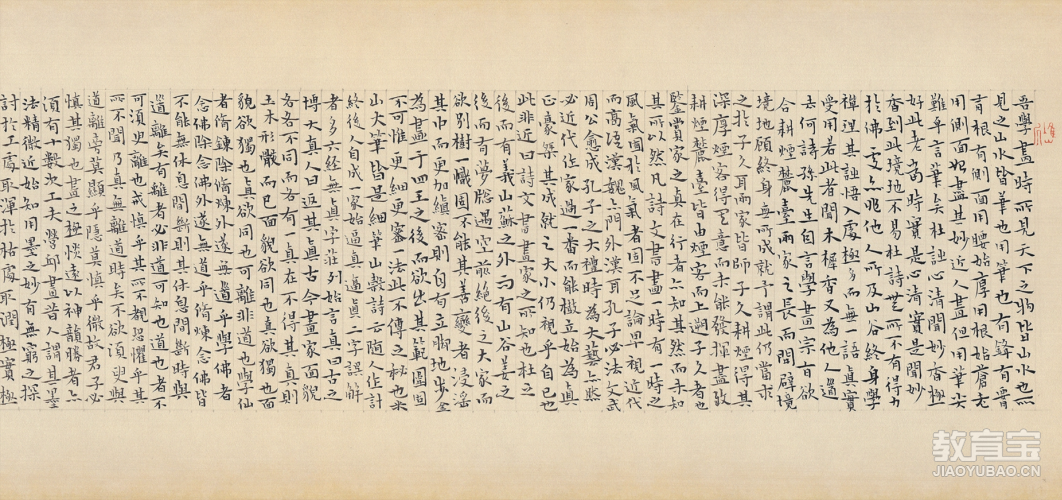 吾學畫時所見天下之物皆山水也所
見之山水皆筆也用筆也有鋒有骨
有根有側面用腰始厚用根始蒼
用側面妙盡其妙近人畫但用筆尖
難乎言筆矣杜詿心清聞妙香極
好此老為此時實是心清實是聞妙
香到此境地不易杜詩不有得力
於佛他人所及山谷終身學
禪理其詿悟入處極多而無一語真實
受用者此者聞木樨香又為他人道
去何詩孫先生自言學畫宗旨有欲
合耕煙麓臺兩家之長而闢境
境地顧終身無所成就予謂此仍當求
之於子久耳兩家皆師子久耕煙得其
深厚煙客得其意而未能發揮盡致
耕煙麓臺皆由煙客而上溯子久者也
鑒賞家之貞在行者六知其然而未知
其所以然凡詩文書畫時時有一時之
風氣囿於風氣者固不足論思視近代
而高語漢魏六門外漢耳孔子必法文武
周公愈成孔子之大禮時為大藝亦然
必近代作家過一番而能樹立始為真
正豪傑其成就之大小仍視乎自己也
此非近曰詩文書畫家所可知杜之
後而有義山蘇之外曰有山谷美之
後而有夢膽遇空前絕後之大家而
欲別樹一幟固不能其善變者浸淫
其中而更加縝密則自有立腳地步金
為畫于四王之後而欲出其範圍固
不可惟更細更審法此不傳之秘也米
山大筆皆是細筆山穀詩云隨人作計
終後人自成一家始逼真逼真二字誤解
者多多六經無真字莊列始言真曰古之
博大真人曰返其真古今畫家面貌
各各不同而各有一真在不得其真則
土木形骸而已面貌欲同也真欲獨也面
貌欲獨也真欲同也可離非道也學仙
者脩鍊除脩煉外遂無道乎學佛者
念佛除念佛外遂無道乎脩煉念佛皆
不能無休息間斷則其休息間斷時與
道離矣有離者必非道可知也道也者不
可須臾離也戒慎乎其所不覩恐懼乎其
所不聞乃真無離道時矣不欲須臾與
道離學莫顯乎隱莫慎乎微故君子必
慎其獨也畫之極恢遠以神韻勝者六
須有十數次工夫營邱昔人謂其墨
法精微近始知用墨之妙有無窮之探
討於工處取渾於枯處取潤極實極